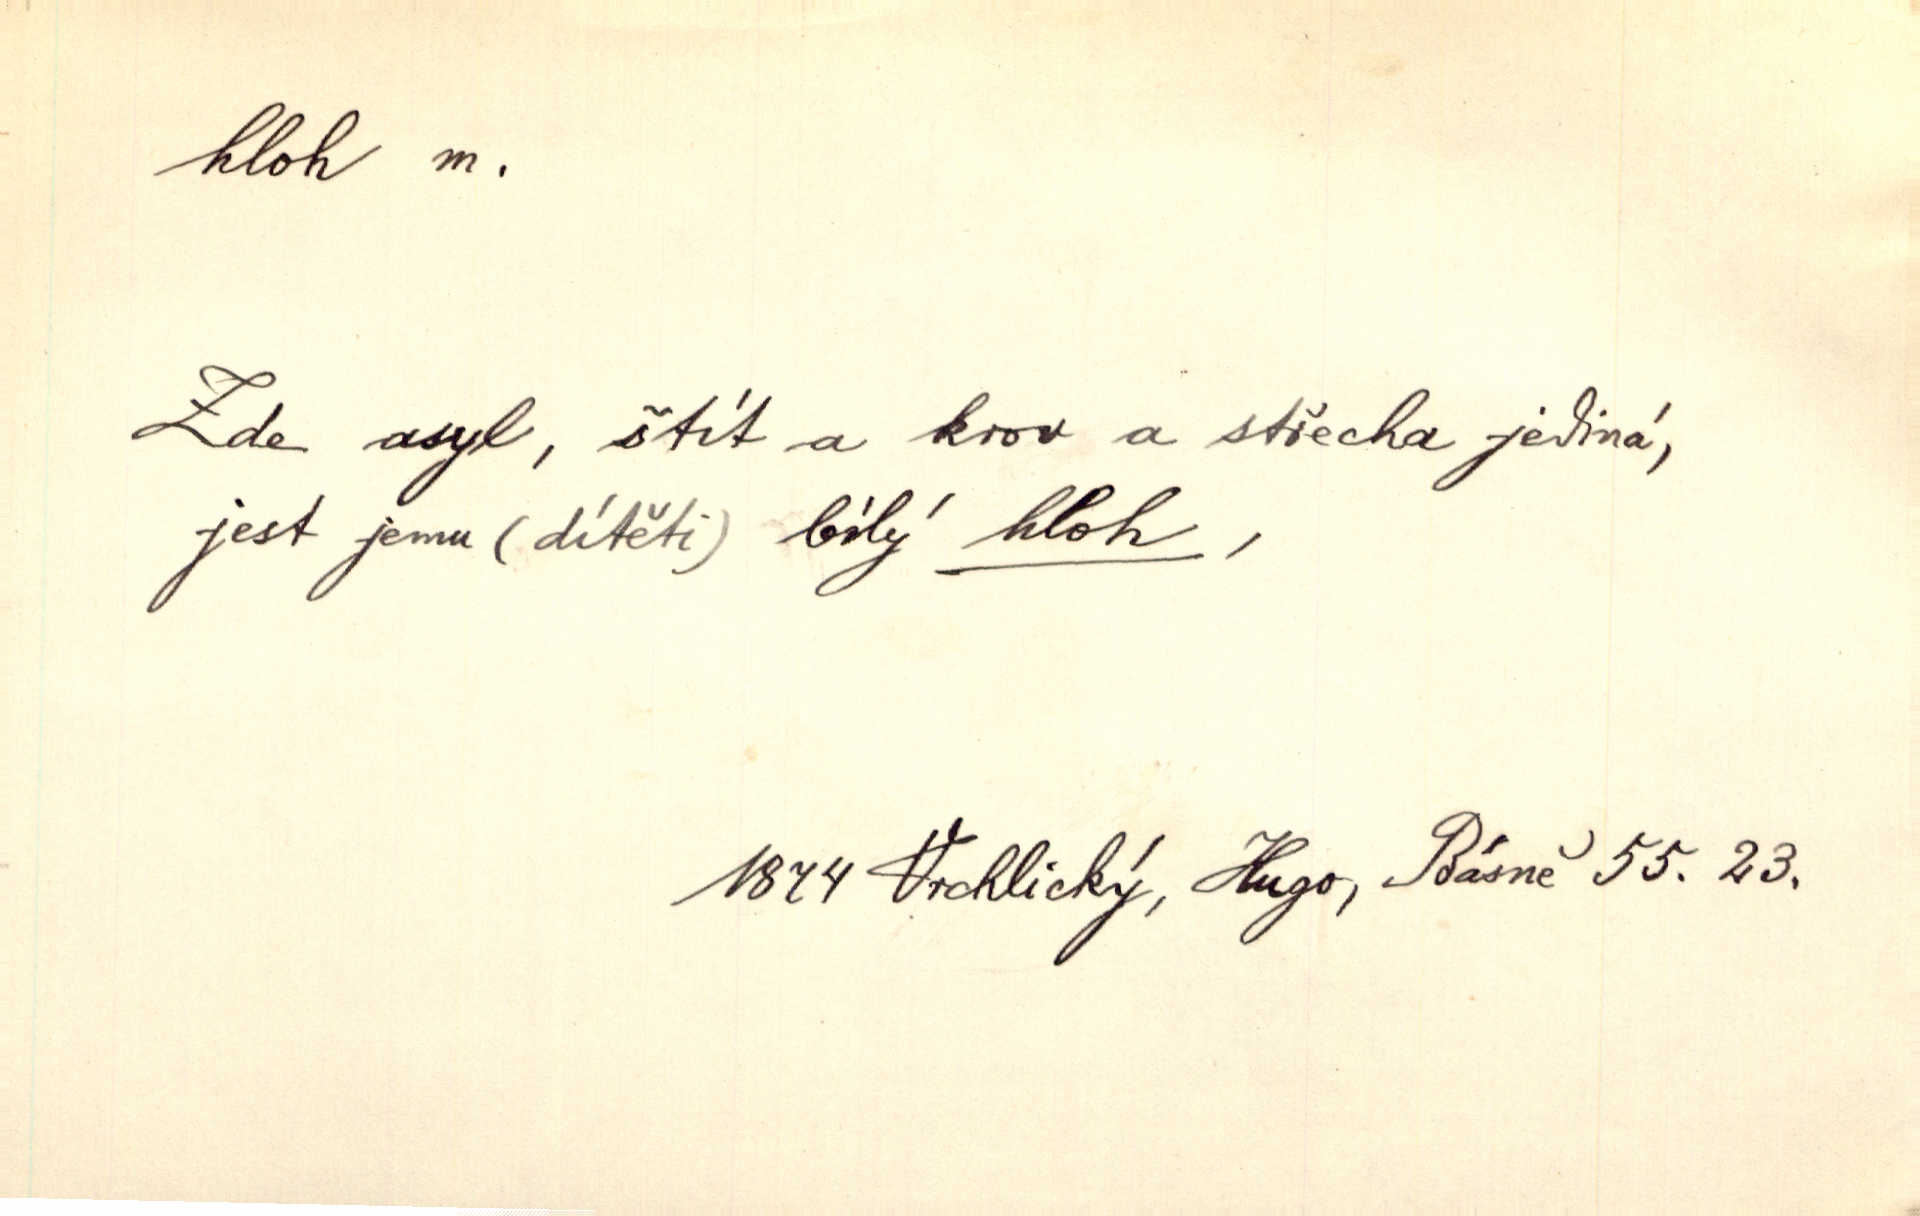 hloh m.
Zde asyl, štít a krov a střecha jediná,
jest jemu (dítěti) bílý hloh,
1874 Vrchlický, Hugo, Básně 55. 23.